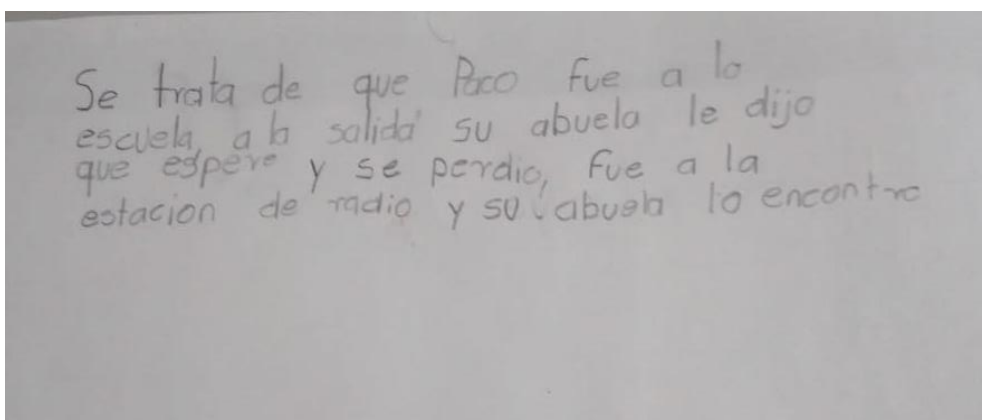 Se trata de que Paco fue a la
escuela, a la salida su abuela le dijo
que espere y se perdio, fue a la
estacion de radio y su abuela lo encontro